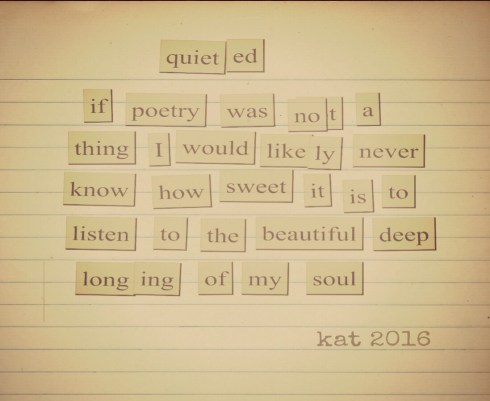 quieted
if poetry was not a
thing I would likely never
know how sweet it is to
listen to the beautiful deep
longing of my soul
kat 2016